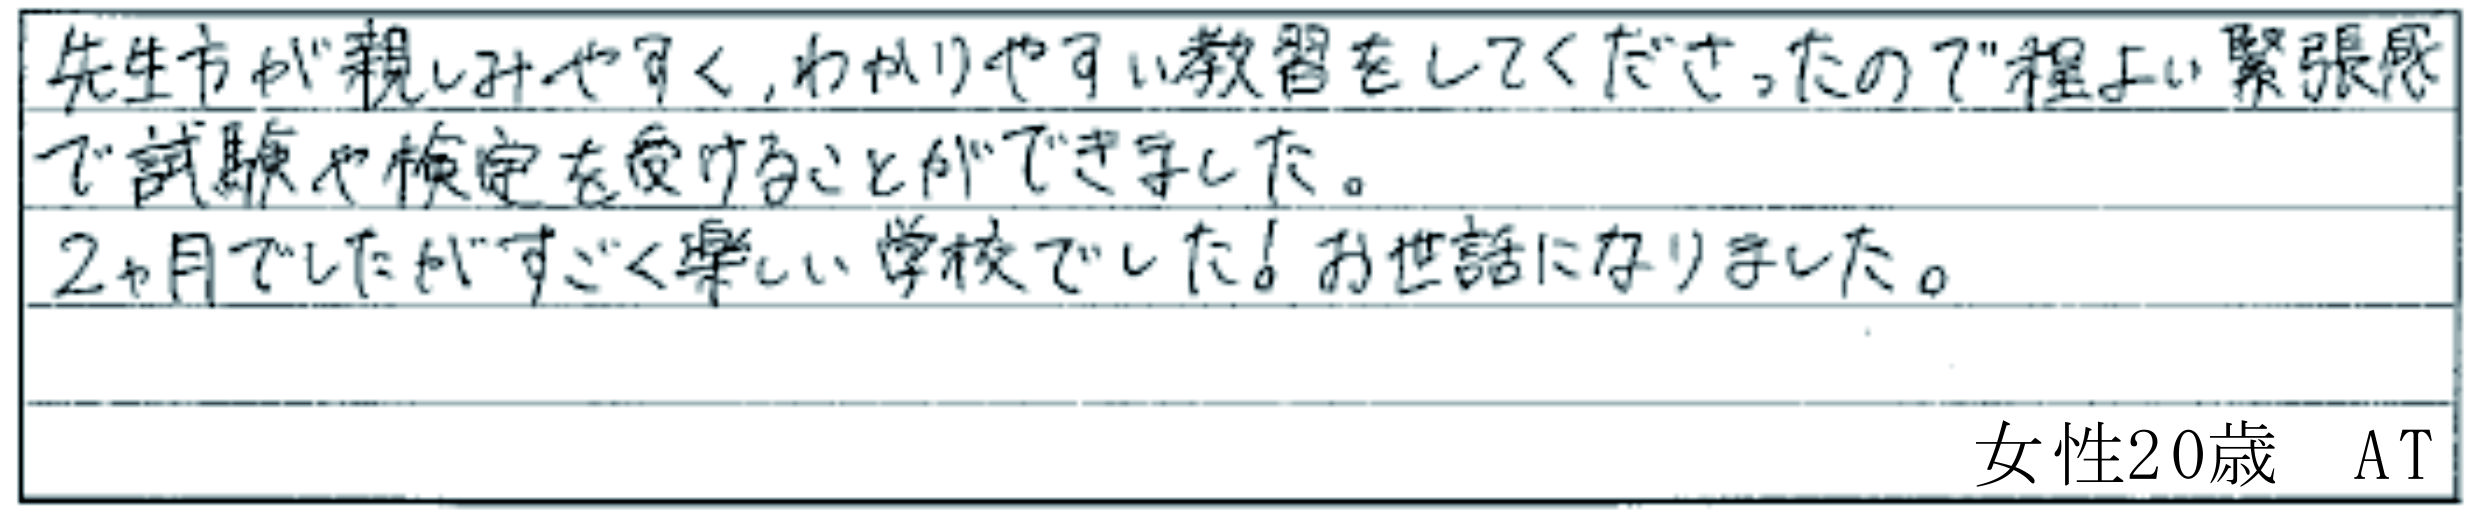 先生方が親しみやすく,わかりやすい教習をしてくださったので程よい緊張感
で試験や検定を受けることができました。
2ヶ月でしたがすごく楽しい学校でした!お世話になりました。
女性20歳　AT